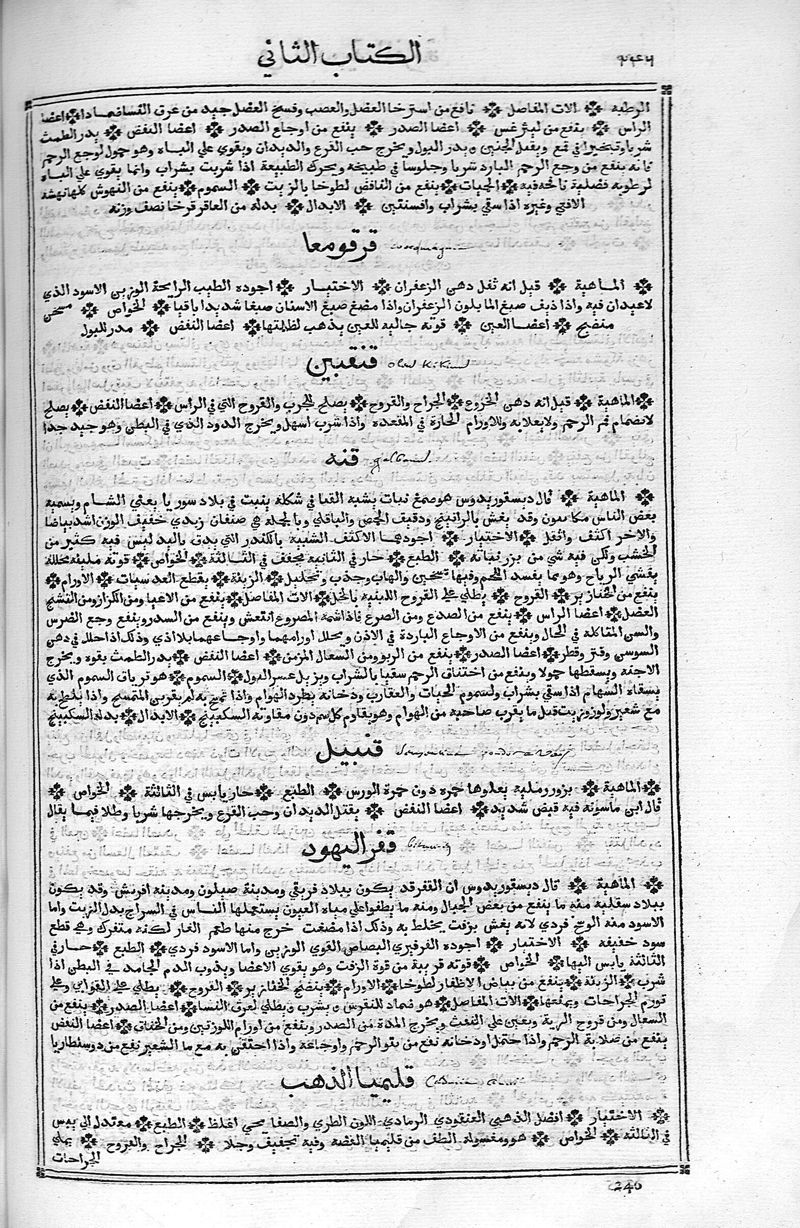 الكتاب الثاني
٢٤٦
الرطبة ❊ الات المفاصل ❊ نافع من استرخا العضل والعصب وفسخ العضل جيد من عرق النسا ضمادا ❊ اعضا
الراس ❊ ينفع من ليثرغس ❊ اعضا الصدر ❊ ينفع من اوجاع الصدر ❊ اعضا النفض ❊ يدر الطمث
شربا وتبخيرا في قمع ويقتل الجنين ويدر البول ويخرج حب القرع والديدان ويقوي علي الباه وهو حمول لوجع الرحم
فانه ينفع من وجع الرحم البارد شربا وجلوسا في طبيخه ويحرك الطبيعة اذا شربت بشراب وانما يقوي علي الباه
لرطوبه فضلية نافخة فيه ❊ الحميات ❊ ينفع من النافض لطوخا بالزيت ❊ السموم ❊ ينفع من النهوش كلها نهشة
الافعي وغيره اذا سقي بشراب وافسنتين ❊ الابدال ❊ بدله من العاقرقرحا نصف وزنه
قرقومعا
❊ الماهية ❊ قيل انه ثفل دهن الزعفران ❊ الاختيار ❊ اجوده الطيب الرايحة الوزين الاسود الذي
لا عيدان فيه واذا ديف صبغ الما بلون الزعفران واذا مضغ صبغ الاسنان صبغا شديدا باقيا ❊ الخواص ❊ مسخن
منضج ❊ اعضا العين ❊ قوته جالية للعين يذهب لظلمتها ❊ اعضا النفض ❊ مدر للبول
قنقبين
❊ الماهية ❊ قيل انه دهن الخروع ❊ الجراح والقروح ❊ يصلح للجرب والقروح التي في الراس ❊ اعضا النفض ❊ يصلح
لانضمام فم الرحم ولانقلابه وللاورام الحارة في المقعدة واذا شرب اسهل ويخرج الدود الذي في البطن وهو جيد جدا
قنه galband
❊ الماهية ❊ قال ديسقوريدوس هو صمغ نبات يشبه القنا في شكله ينبت في بلاد سوريا يعني الشام ويسميه
بعض الناس وقد يغش بالراتينج ودقيق الحمص والباقلي وبالجملة هي صنفان زبدي خفيف الوزن اشد بياضا
والاخر اكثف واثقل ❊ الاختيار ❊ اجودها الاكثف الشبيه بالكندر التي يدبق باليد ليس فيه كثير من
الخشب ولكن فيه شي من بزر نباته ❊ الطبع ❊ حار في الثانية مجفف في الثالثة ❊ الخواص ❊ قوته ملينه محللة
يفشي الرياح وهو مما يفسد اللحم وفيها تسخين والهاب وجذب وتحليل ❊ الزينة ❊ يقطع العدسيات ❊ الاورام ❊
ينفع من الخنازير ❊ القروح ❊ يطلي علي القروح اللبنيه بالخل ❊ الات المفاصل ❊ ينفع من الاعيا ومن الكزاز ومن التشنج
العضل ❊ اعضا الراس ❊ ينفع من الصدع ومن الصرع فاذا شمه المصروع انتعش وينفع من السدر وينفع وجع الضرس
والسن المتاكله في الحال وينفع من الاوجاع الباردة في الاذن ويحلل اورامهما واوجاعهما بلا اذي وذلك اذا حلل في دهن
السوسن وفتر وقطر ❊ اعضا الصدر ❊ ينفع من الربو ومن السعال المزمن ❊ اعضا النفض ❊ يدر الطمث بقوه ويخرج
الاجنه ويسقطها حمولا وينفع من اختناق الرحم سقيا بالشراب ويزيل عسر البول ❊ السموم ❊ هو ترياق السموم الذي
يسقاه السهام اذا سقي بشراب ولسموم الحيات والعقارب ودخانه يطرد الهوام واذا تمسح به لم يقربن المتمسح واذا خلط به
قتل ما يقرب صاحبه من الهوام وهو يقاوم كل سم دون مقاومة السكبينج ❊ الابدال ❊ بدله السكبينج
قنبيل
❊ الماهية ❊ بزور رملية يعلوها حمرة دون حمرة الورس ❊ الطبع ❊ حار يابس في الثالثة ❊ الخواص ❊
قال ابن ماسوية فيه قبض شديد ❊ اعضا النفض ❊ يقتل الديدان وحب القرع ويخرجها شربا وطلا فيما يقال
قفر اليهود
❊ الماهية ❊ قال ديسقوريدوس ان القفر قد يكون ببلاد فريقي ومدينة صيدون ومدينة وقد يكون
ببلاد سقليه منه ما ينبع من بعض الجبال ومنه ما يطفوا علي مياه العيون يستعملها الناس في السراج بدل الزيت واما
الاسود منه الوسخ فردي لانه يغش بزفت يخلط به وذلك اذا مضغت خرج منها طعم القار لكنه متفرك وهي قطع
سود خفيفه ❊ الاختيار ❊ اجوده الفرفيري البصاص القوي الوزين واما الاسود فردي ❊ الطبع ❊ حار في
الثالثة يابس اليها ❊ الخواص ❊ قوته قريبة من قوة الزفت وهو يقوي الاعضا ويذوب الدم الجامد في البطن اذا
شرب ❊ الزينة ❊ ينفع من بياض الاظفار لطوخا ❊ الاورام ❊ ينضج الخنازير ❊ القروح ❊ يطلي علي القوابي وعلي
تورم الجراحات ويمنعها ❊ الات المفاصل ❊ هو ضماد للنقرس ويشرب ويطلي لعرق النسا ❊ اعضا الصدر ❊ ينفع من
السعال ومن قروح الرية ويعين علي النفث ويخرج المدة من الصدر وينفع من اورام اللوزتين ومن الخناق ❊ اعضا النفض
ينفع من صلابة الرحم واذا احتمل او دخانه نفع من نتو الرحم واوجاعه واذا احتقن به مع ما الشعير نفع من دوسنطاريا
قليميا الذهب
❊ الاختيار ❊ افضل الذهبي العنقودي الرمادي اللون الطري والصفايحي اغلظ ❊ الطبع ❊ معتدل الي يبس
في الثالثه ❊ الخواص ❊ هو ومغسوله الطف من قليميا الفضه وفيه تجفيف وجلا ❊ الجراح والقروح ❊ يملي
الجراحات
246